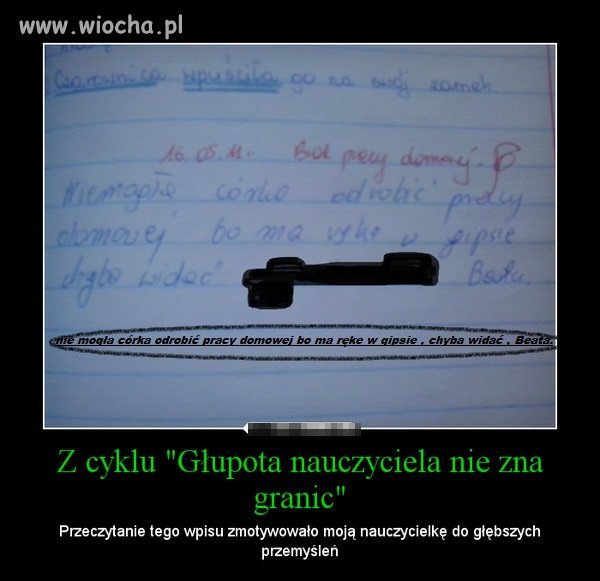 www.wiocha.pl
Czarownica wpuściła go na swój zamek.
16.05.11r. Brak pracy domowej.
Niemogła córka odrobić pracy
domowej bo ma rykę w gipsie
chyba widać Beata.
nie mogła córka odrobić pracy domowej bo ma ręke w gipsie , chyba widać , Beata.
Z cyklu "Głupota nauczyciela nie zna
granic"
Przeczytanie tego wpisu zmotywowało moją nauczycielkę do głębszych
przemyśleń